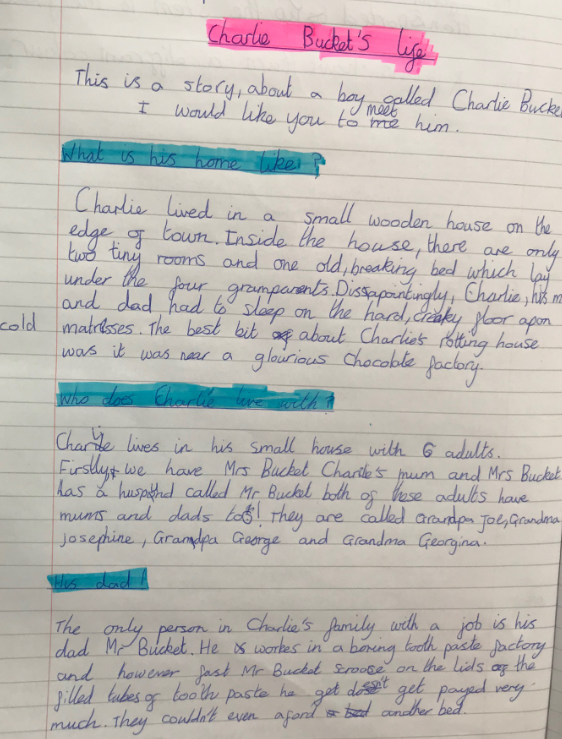 Charlie Bucket's life
This is a story, about a boy called Charlie Bucke
I would like you to meet him.
What is his home like?
Charlie lived in a small wooden house on the
edge of town. Inside the house, there are only
two tiny rooms and one old, breaking bed which lay
under the four gramparents. Dissapointingly, Charlie, his m
and dad had to sleep on the hard, creaky floor apon
cold matrisses. The best bit about Charlie's rotting house
was it was near a glourious chocolate factory.
Who does Charlie live with?
Charlie lives in his small house with 6 adults.
Firstly, we have Mrs Bucket Charlie's mum and Mrs Bucket
has a husband called Mr Bucket both of these adults have
mums and dads too! They are called Grandpa Joe, Grandma
Josephine, Grandpa George and Grandma Georgina.
His dad!
The only person in Charlie's family with a job is his
dad Mr Bucket. He workes in a boring tooth paste factory
and however fast Mr Bucket scroose on the lids of the
filled tubes of tooth paste he get dosen't get payed very
much. They couldn't even aford another bed.